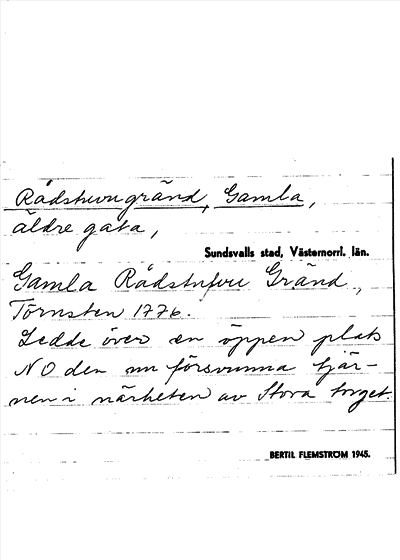 Rådstuvugränd, Gamla,
äldre gata,
Sundsvalls stad, Västernorrl. län.
Gamla Rådstufvu Gränd.,
Törnsten 1776.
Ledde över en öppen plats
NO den nu försvunna tjär-
nen i närheten av Stora torget.
BERTIL FLEMSTRÖM 1945.